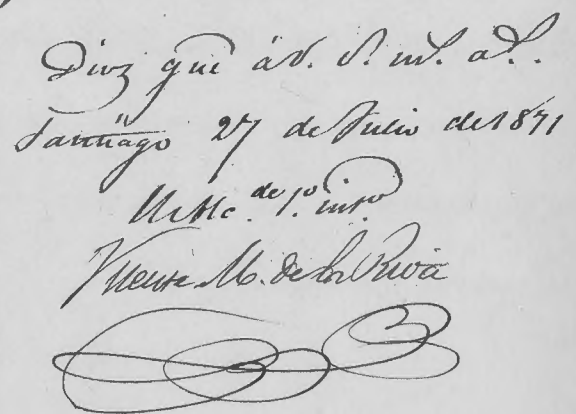 Dios gue á V. S. m. a.
Santiago 27 de Julio de 1871
de 1º
Vicente M. de la Riva